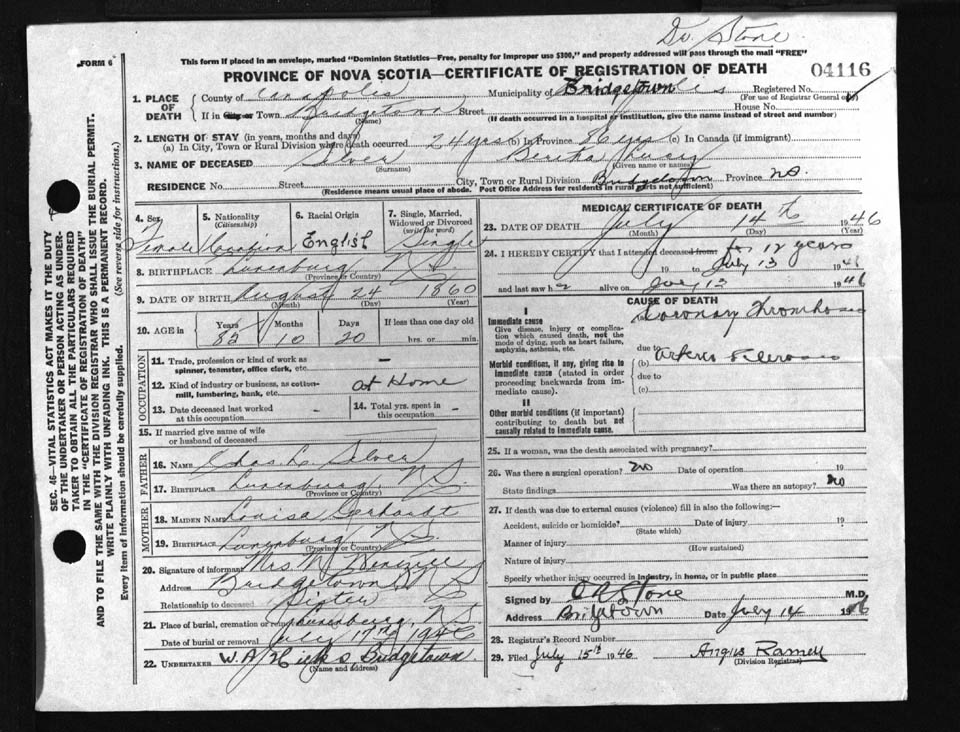 Dr. Stone
FORM 6
This form if placed in an envelope, marked "Dominion Statistics—Free, penalty for improper use $300," and properly addressed will pass through the mail "FREE"
PROVINCE OF NOVA SCOTIA—CERTIFICATE OF REGISTRATION OF DEATH
04116
1. PLACE OF DEATH
County of Annapolis Municipality of Bridgetown Registered No.
(For use of Registrar General only)
If in City or Town Bridgetown Street House No.
(Name) (If death occurred in a hospital or institution, give the name instead of street and number)
2. LENGTH OF STAY (in years, months and days)
(a) In City, Town or Rural Division where death occurred 24 yrs (b) In Province (c) In Canada (if immigrant)
3. NAME OF DECEASED Silver Bertha
(Surname) (Given name or names)
RESIDENCE No. Street City, Town or Rural Division Bridgetown Province N.S.
(Residence means usual place of abode. Post Office Address for residents in rural parts not sufficient)
4. Sex
Female
5. Nationality
(Citizenship)
Canadian
6. Racial Origin
English
7. Single, Married, Widowed or Divorced
(write the word)
Single
8. BIRTHPLACE Lunenburg N.S.
(Province or Country)
9. DATE OF BIRTH August 24 1860
(Month) (Day) (Year)
10. AGE in
Years Months Days If less than one day old
10 20 hrs. or min.
OCCUPATION
11. Trade, profession or kind of work as spinner, teamster, office clerk, etc. —
12. Kind of industry or business, as cotton-mill, lumbering, bank, etc. at Home
13. Date deceased last worked at this occupation -
14. Total yrs. spent in this occupation -
15. If married give name of wife or husband of deceased
FATHER
16. NAME Chas L. Silver
17. BIRTHPLACE Lunenburg, N.S.
(Province or Country)
MOTHER
18. MAIDEN NAME Louisa Gerhardt
19. BIRTHPLACE Lunenburg, N.S.
(Province or Country)
20. Signature of informant Mrs.
Address Bridgetown N S
Relationship to deceased Sister
21. Place of burial, cremation or removal Lunenburg, N.S.
Date of burial or removal July 17th 1946
22. UNDERTAKER W.A. Hicks Bridgetown.
(Name and address)
MEDICAL CERTIFICATE OF DEATH
23. DATE OF DEATH July 14th 1946
(Month) (Day) (Year)
24. I HEREBY CERTIFY that I attended deceased from for 12 years
19 to July 13 1946
and last saw h alive on July 13 1946
CAUSE OF DEATH
I
Immediate cause
Give disease, injury or complication which caused death, not the mode of dying, such as heart failure, asphyxia, asthenia, etc.
Coronary Thrombosis
due to
Morbid conditions, if any, giving rise to immediate cause (stated in order proceeding backwards from immediate cause).
(b) Arterio Sclerosis
due to
(c)
II
Other morbid conditions (if important) contributing to death but not causally related to immediate cause.
25. If a woman, was the death associated with pregnancy?
26. Was there a surgical operation? no Date of operation 19
State findings Was there an autopsy? no
27. If death was due to external causes (violence) fill in also the following:—
Accident, suicide or homicide? Date of injury 19
(State which)
Manner of injury
(How sustained)
Nature of injury
Specify whether injury occurred in industry, in home, or in public place
Signed by Stone M.D.
Address Bridgetown Date July 14 1946
28. Registrar's Record Number
29. Filed July 15th 1946 Angus Ramey
(Division Registrar)
SEC. 46—VITAL STATISTICS ACT MAKES IT THE DUTY
OF THE UNDERTAKER OR PERSON ACTING AS UNDER-
TAKER TO OBTAIN ALL THE PARTICULARS REQUIRED
IN THE "CERTIFICATE OF REGISTRATION OF DEATH"
AND TO FILE THE SAME WITH THE DIVISION REGISTRAR WHO SHALL ISSUE THE BURIAL PERMIT.
WRITE PLAINLY WITH UNFADING INK. THIS IS A PERMANENT RECORD.
Every item of information should be carefully supplied. (See reverse side for instructions.)